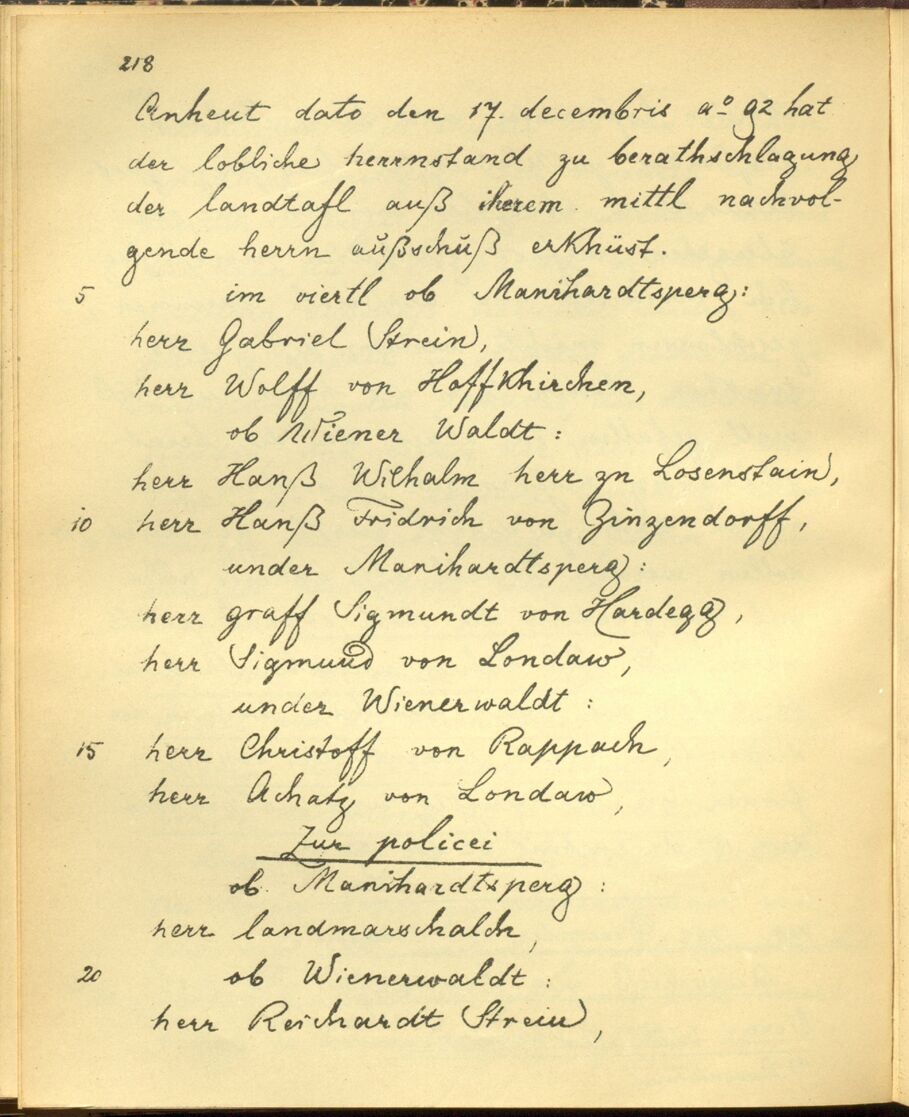 218
Anheut dato den 17. decembris ao 92 hat
der lobliche herrnstand zu berathschlagung
der landtafl auß iherem mittl nachvol-
gende herrn außschuß erkhüst.
5 im viertl ob Manihardtsperg:
herr Gabriel Strein,
herr Wolff von Hoffkhirchen,
ob Wiener Waldt:
herr Hanß Wilhalm herr zu Losenstain,
10 herr Hanß Fridrich von Zinzendorff,
under Manihardtsperg:
herr graff Sigmundt von Hardegg,
herr Sigmund von Londaw,
under Wienerwaldt:
15 herr Christoff von Rappach,
herr Achatz von Londaw,
Zur policei
ob Manihardtsperg:
herr landmarschalch,
20 ob Wienerwaldt:
herr Reichardt Strein,